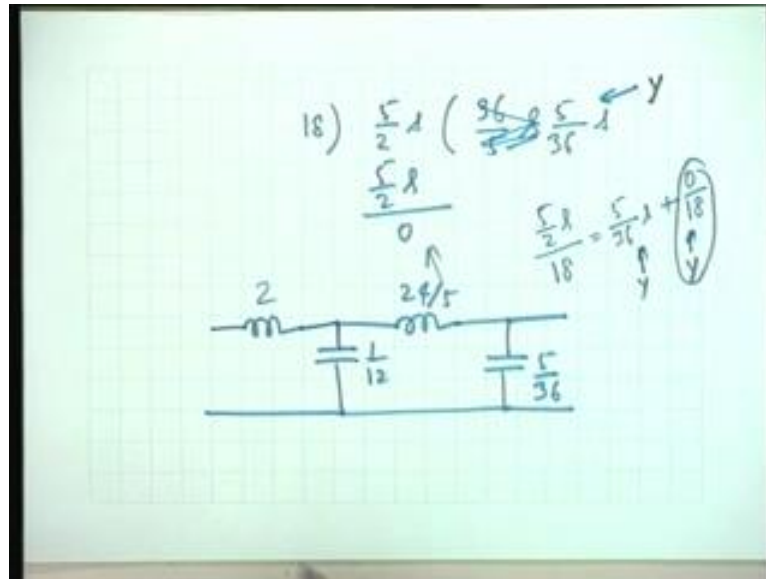 18) 5/2 s ( 5/36 s ← Y
5/2 s
0
5/2 s / 18 = 5/36 s + 0/18
↑ Y ↑ Y
2 24/5
1/12 5/36